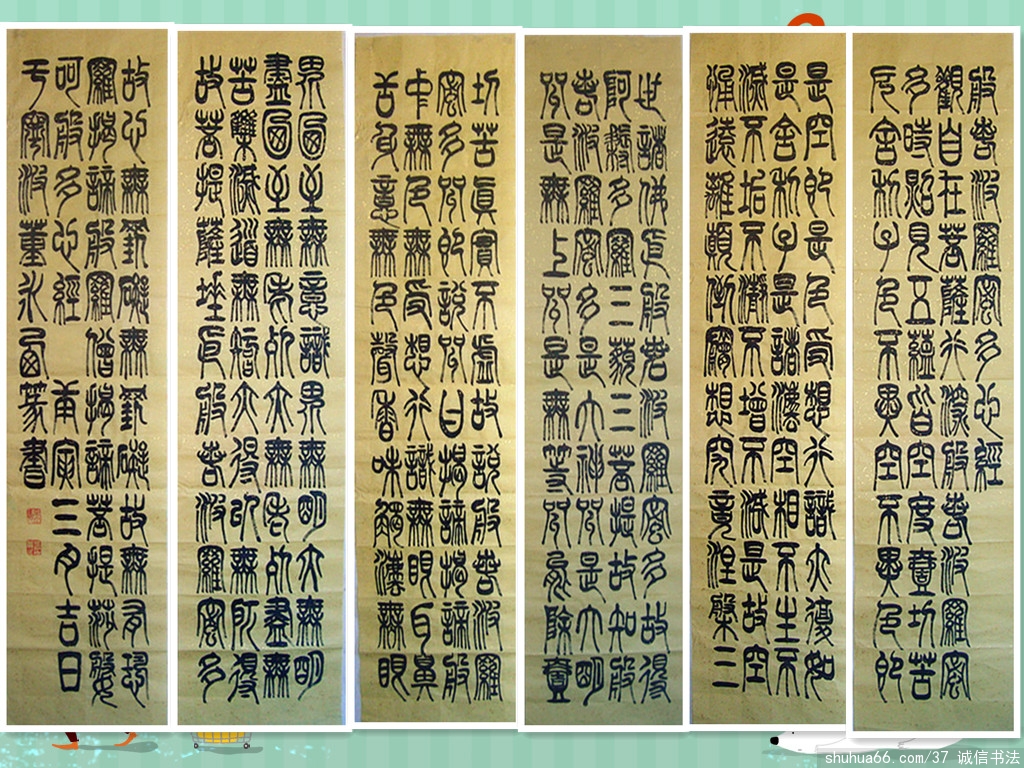 般若波羅蜜多心經
觀自在菩薩行深般若波羅蜜
多時照見五蘊皆空度壹切苦
厄舍利子色不異空不異色即
是空即是色受想行識亦復如
是舍利子是諸灋空相不生不
滅不垢不淨不增不減是故空
怖遠離顛倒夢想究竟涅槃三
世諸佛依般若波羅蜜多故得
阿耨多羅三藐三菩提故知般
若波羅蜜多是大神咒是大明
咒是無上咒是無等咒能除壹
切苦真實不虛故說般若波羅
蜜多咒即說咒曰揭諦揭諦般
中無色無受想行識無眼耳鼻
舌身意無色聲香味觸灋無眼
界迺至無意識界無明亦無明
盡迺至無老死亦無老死盡無
苦集滅道無智亦得以無所得
故菩提薩埵依般若波羅蜜多
故心無罣礙無罣礙故無有恐
羅揭諦般羅僧揭諦菩提莎婆
呵般多心經 庚寅三月吉日
于寧波董永篆書
shuhua66.com/37 诚信书法